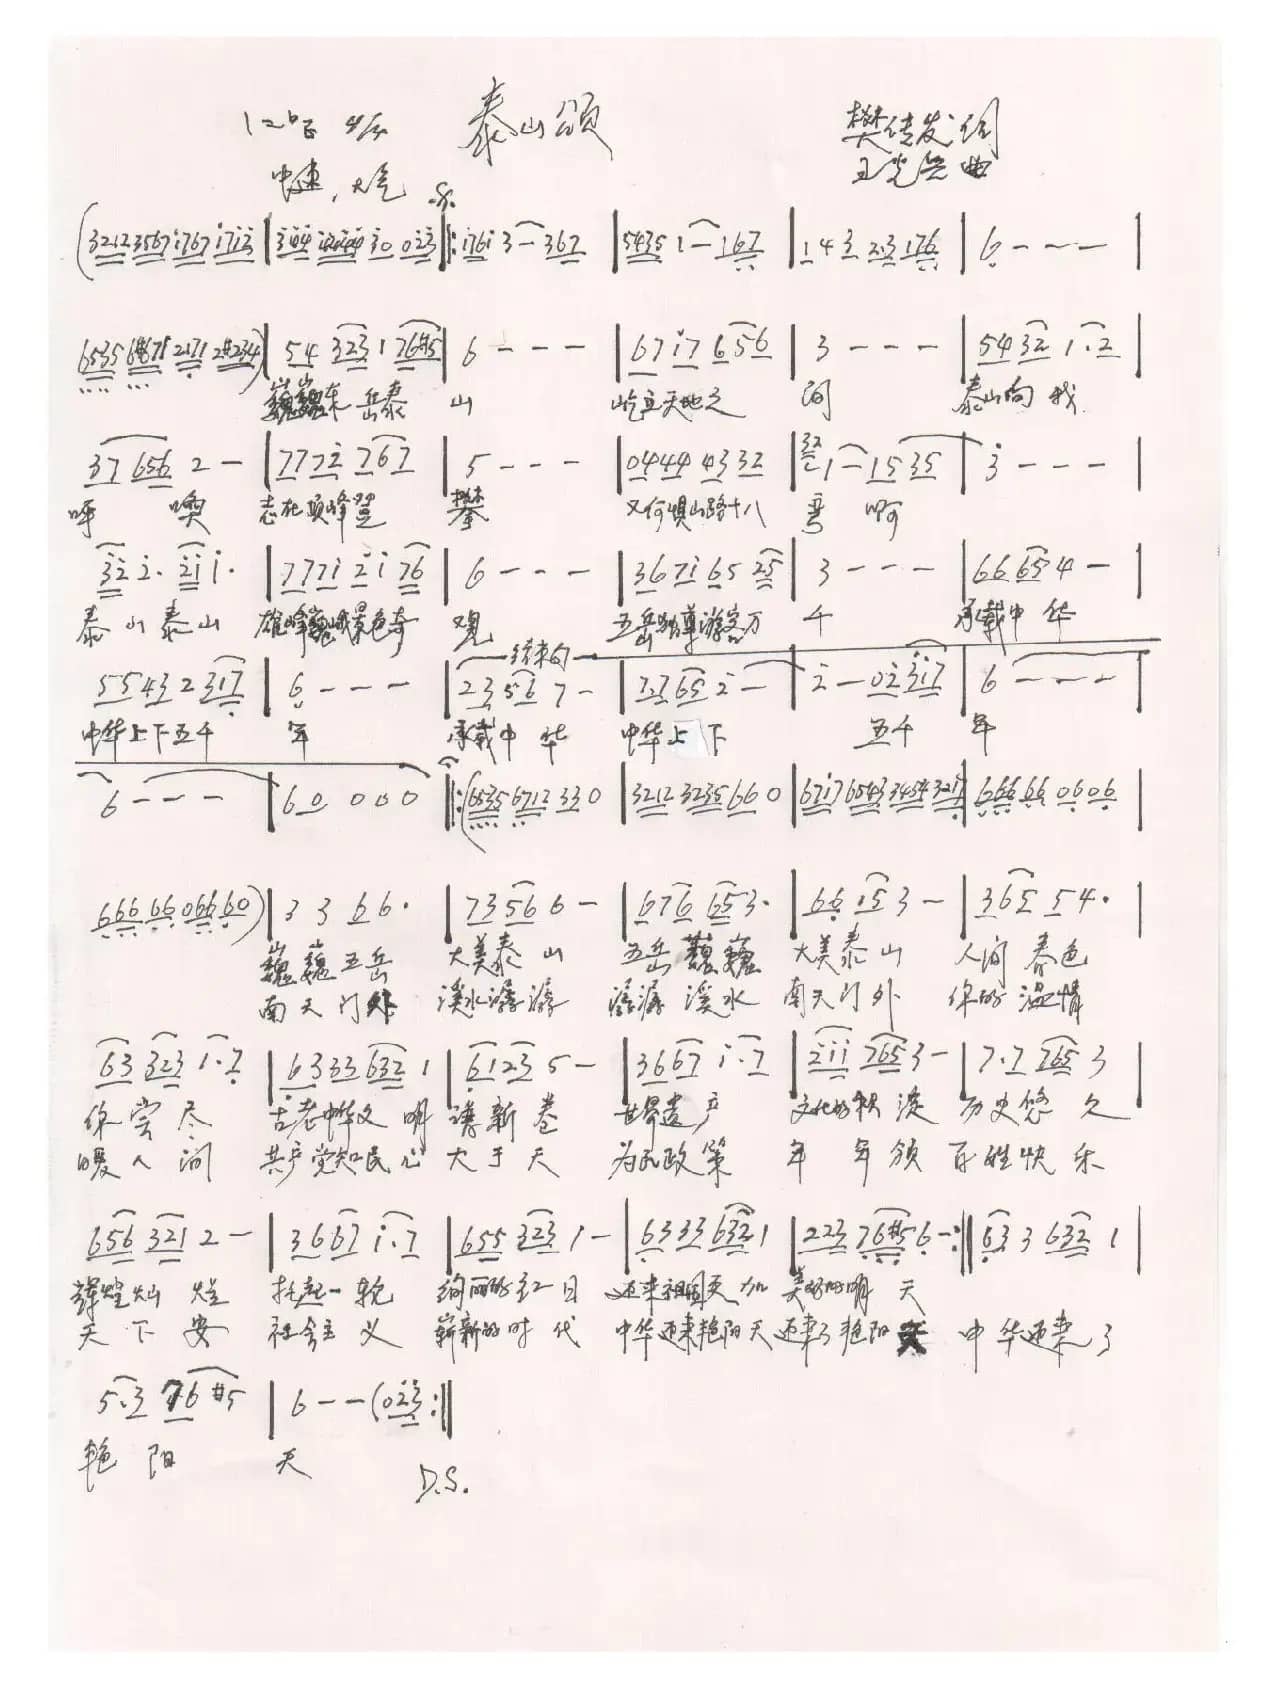 泰山颂
1=bE 4/4
樊传发词
中速、大气
曲
(3212 3567 1767 1712 | 30 023 ‖: 1761 3 - 367 | 5435 1 - 167 | 1 4 3 2·3 176 | 6 - - - |
54 323 1 76#5 | 6 - - - | 6717 656 | 3 - - - | 5432 1·2
巍巍东岳泰 山 屹立天地之 间 泰山向我
37 656 2 - | 7772 767 | 5 - - - | 0444 4332 | 32 1 - 1535 | 3 - - - |
呼 唤 志在顶峰 攀 又何惧山路十八 弯 啊
32 2· 211· | 7771 21 76 | 6 - - - | 3671 65 25 | 3 - - - | 66 65 4 - |
泰山泰山 雄峰巍峨景色奇 观 五岳独尊游客万 千 承载中华
结束句
5543 2 317 | 6 - - - | 23 56 7 - | 7·765 2 - | 2 - 02 317 | 6 - - - |
中华上下五千 年 承载中华 中华上下 五千 年
6 - - - | 60 0 0 0 ‖: (6535 6712 33 0 | 3212 3235 66 0 | 6717 6543 3454 3217 | 666 66 06 06 |
666 66 066 60) | 3 3 66· | 73 56 6 - | 676 653· | 66 15 3 - | 365 54· |
巍巍五岳 大美泰山 五岳巍巍 大美泰山 人间春色
南天门外 溪水潺潺 潺潺溪水 南天门外 你的温情
63 323 1·7 | 6333 632 1 | 6123 5 - | 3667 1·7 | 211 765 3 - | 7·7 765 3
你尝尽 古老中华文明 谱新卷 世界遗产 文化的积淀 历史悠久
暖人间 共产党知民心 大于天 为民政策 年年颁 百姓快乐
656 321 2 - | 3667 1·7 | 655 323 1 - | 6333 632 1 | 223 76#56 - :‖ 63 3 632 1 |
辉煌灿烂 托起一轮 绚丽的红日 迎来祖国更加 美好的明天
天下安 社会主义 崭新的时代 中华迎来艳阳天 迎来了艳阳天 中华迎来了
5·3 76#5 | 6 - - (023 :‖
艳阳 天 D.S.